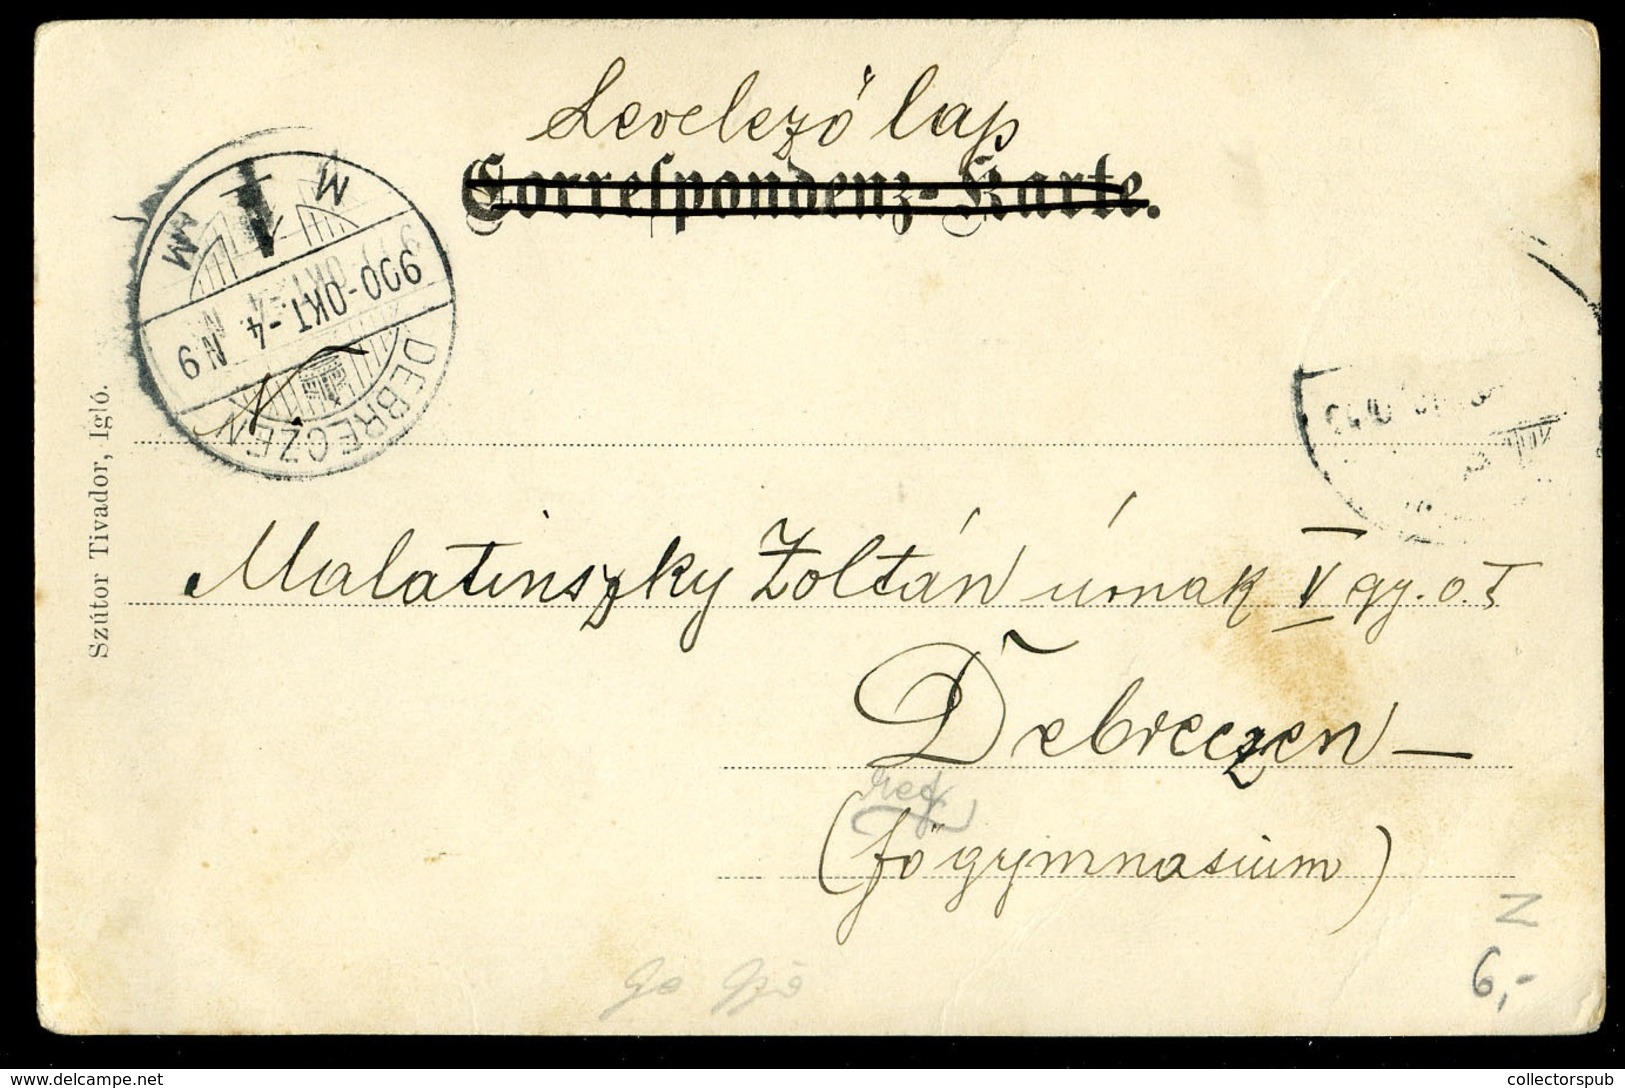 Levelező lap
Correspondenz-Karte.
M
M
1
900-OKT.-4
N9
DEBRECZEN
Szútor Tivador, Igló.
Malatinszky Zoltán úrnak V gy. o. T
Debreczen —
ref
(főgymnasium)
Z
6,-
collectorspub